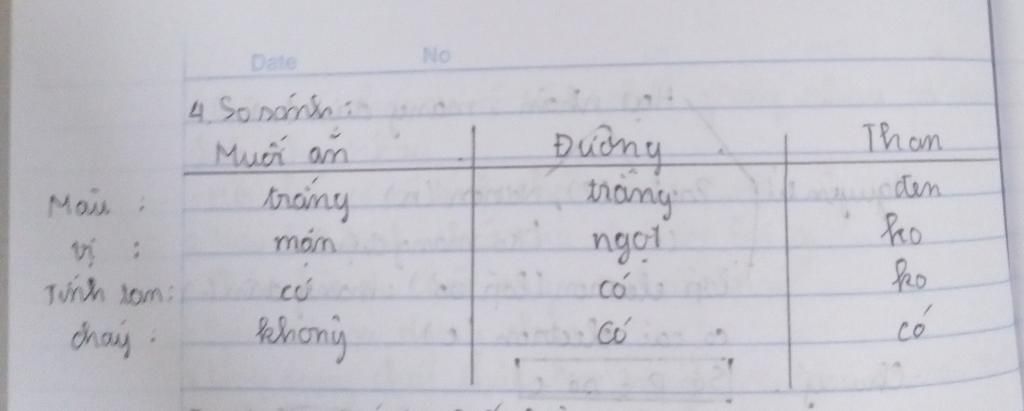 Date No
4. So sánh:
Muối ăn Đường Than
Màu: trắng trắng đen
vị: mặn ngọt ko
Tính tan: có có ko
cháy: không có có